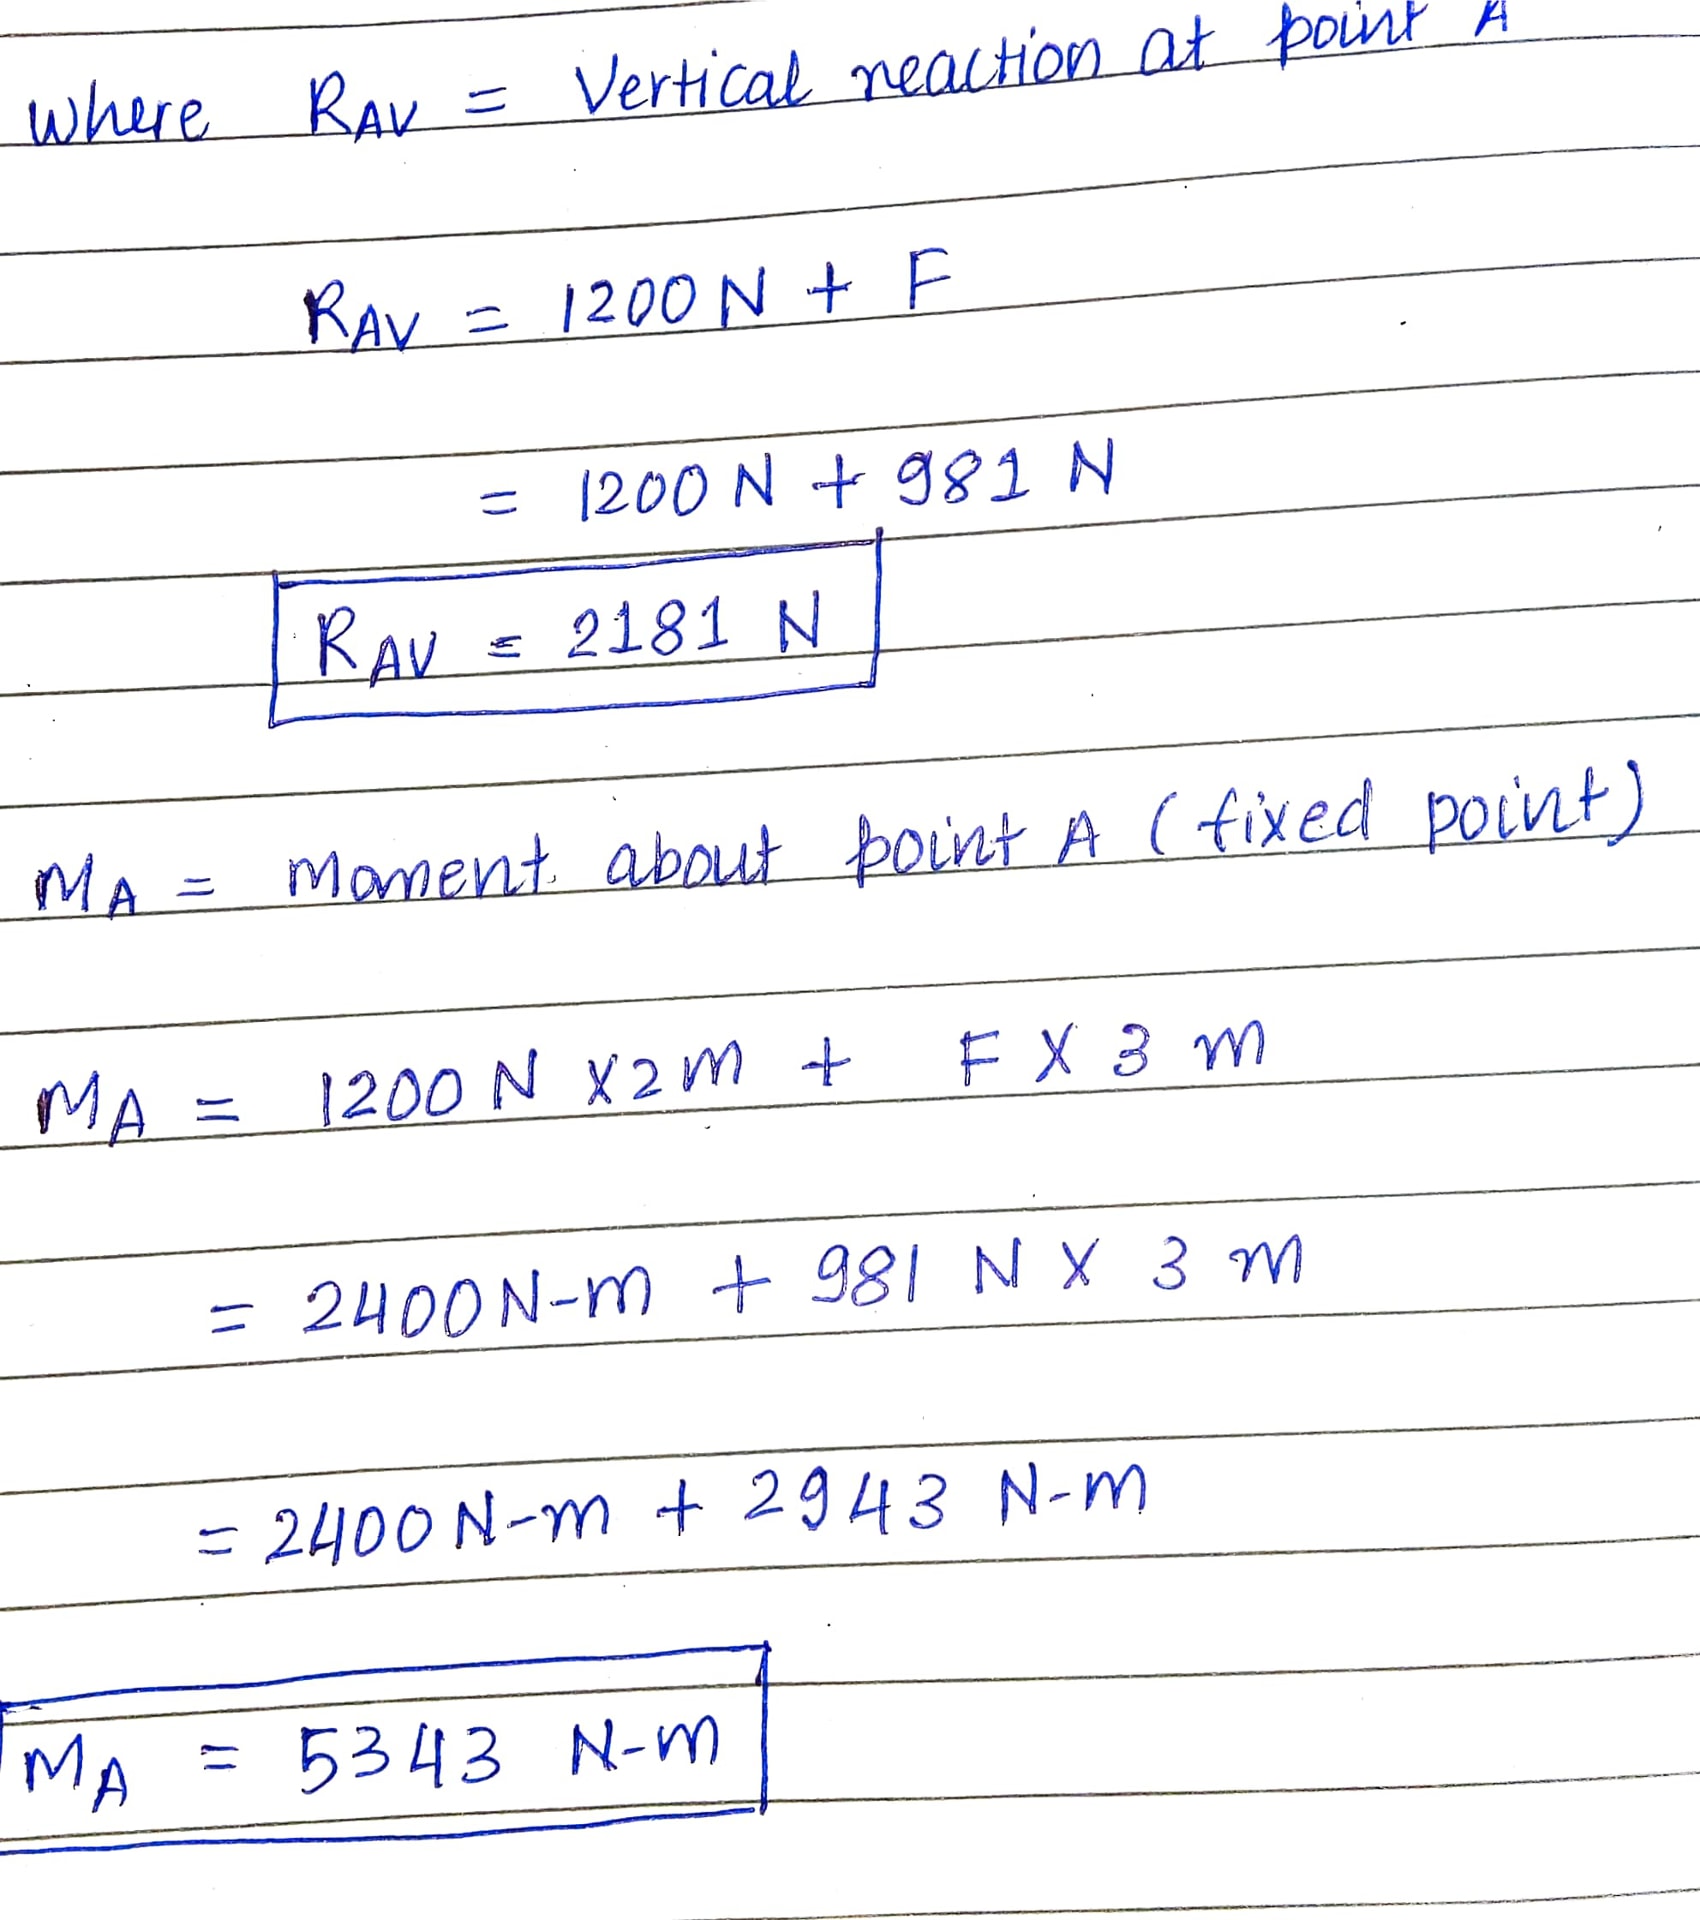 Where RAV = Vertical reaction at point A
RAV = 1200 N + F
= 1200 N + 981 N
RAV = 2181 N
MA = Moment about point A (fixed point)
MA = 1200 N x 2 m + F x 3 m
= 2400 N-m + 981 N x 3 m
= 2400 N-m + 2943 N-m
MA = 5343 N-m